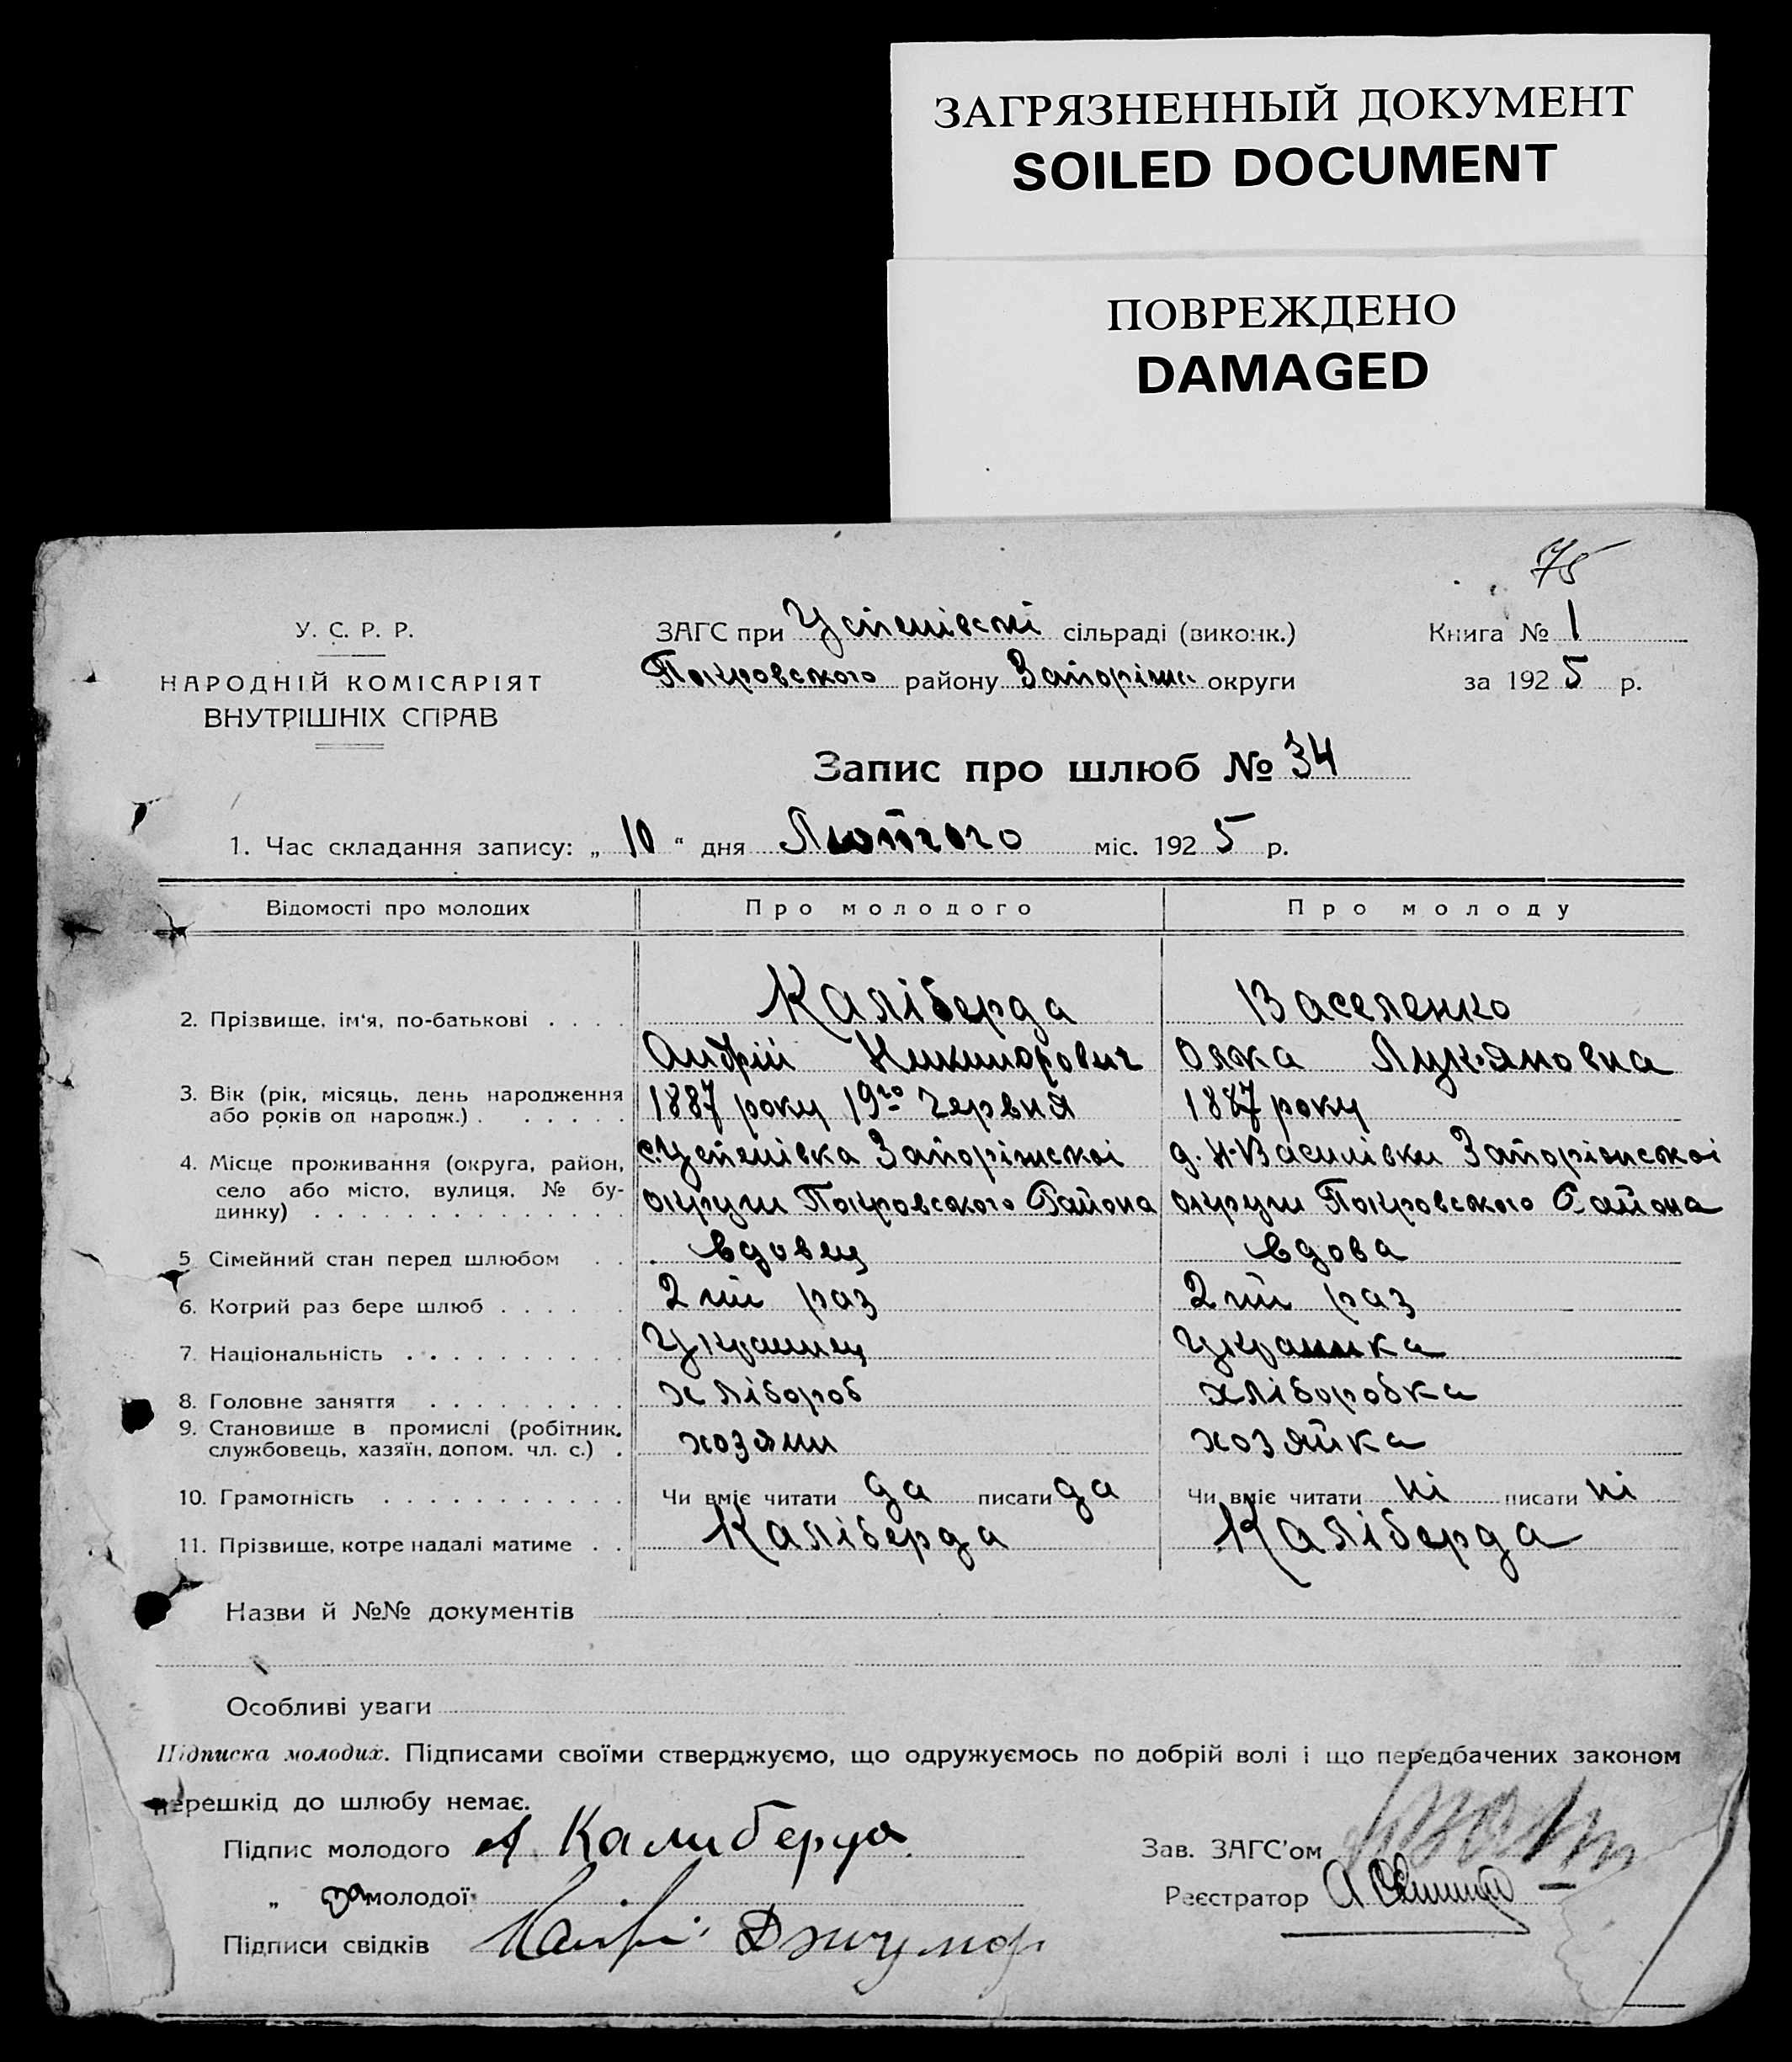 ЗАГРЯЗНЕННЫЙ ДОКУМЕНТ
SOILED DOCUMENT
ПОВРЕЖДЕНО
DAMAGED
75
У. С. Р. Р.
НАРОДНІЙ КОМІСАРІЯТ
ВНУТРІШНІХ СПРАВ
ЗАГС при Успенівскі сільраді (виконк.)
Покровського району Запоріжс округи
Книга № 1
за 1925 р.
Запис про шлюб № 34
1. Час складання запису: „ 10 “ дня Лютого міс. 1925 р.
Відомості про молодих Про молодого Про молоду
2. Прізвище, ім'я, по-батькові . . . . Каліберда Васеленко
Андрій Никифорович Олжа Лук'яновна
3. Вік (рік, місяць, день народження 1887 року 19го Червня 1887 року
або років од народж.) . . . . . .
4. Місце проживання (округа, район, с. Успенівка Запоріжскоі д. Н-Василівки Запоріжскоі
село або місто, вулиця, № бу-
динку) . . . . . . . . . . . . . . округи Покровського Району округи Покровського Района
5. Сімейний стан перед шлюбом . . вдовец вдова
6. Котрий раз бере шлюб . . . . . . 2 ий раз 2 ий раз
7. Національність . . . . . . . . . . Украинец Украинка
8. Головне заняття . . . . . . . . . хлібороб хліборобка
9. Становище в промислі (робітник,
службовець, хазяїн, допом. чл. с.) . хозяин хозяйка
10. Грамотність . . . . . . . . . . . Чи вміє читати да писати да Чи вміє читати ні писати ні
11. Прізвище, котре надалі матиме . . Каліберда Каліберда
Назви й №№ документів
Особливі уваги
Підписка молодих. Підписами своїми стверджуємо, що одружуємось по добрій волі і що передбачених законом
перешкід до шлюбу немає.
Підпис молодого А. Калиберда
Зав. ЗАГС'ом
„ за молодої
Реєстратор
Підписи свідків